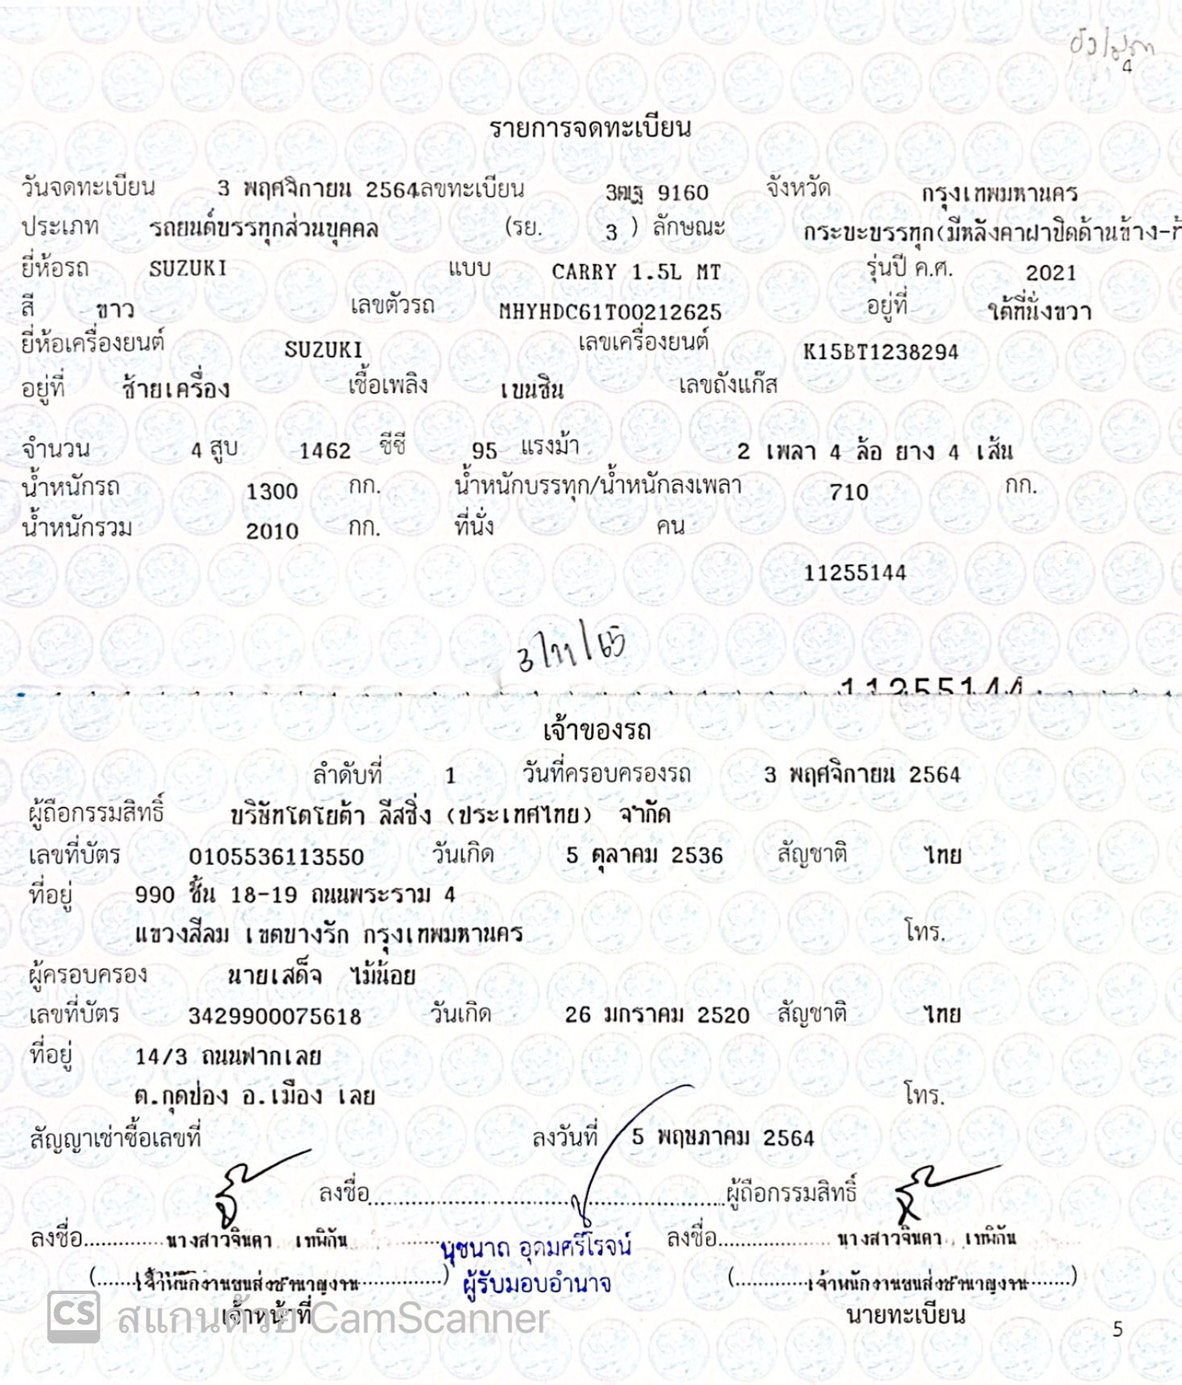 4
รายการจดทะเบียน
วันจดทะเบียน 3 พฤศจิกายน 2564 เลขทะเบียน 3ฒฐ 9160 จังหวัด กรุงเทพมหานคร
ประเภท รถยนต์บรรทุกส่วนบุคคล (รย. 3 ) ลักษณะ กระบะบรรทุก(มีหลังคาฝาปิดด้านข้าง-ท้
ยี่ห้อรถ SUZUKI แบบ CARRY 1.5L MT รุ่นปี ค.ศ. 2021
สี ขาว เลขตัวรถ MHYHDC61T00212625 อยู่ที่ ใต้ที่นั่งขวา
ยี่ห้อเครื่องยนต์ SUZUKI เลขเครื่องยนต์ K15BT1238294
อยู่ที่ ซ้ายเครื่อง เชื้อเพลิง เบนซิน เลขถังแก๊ส
จำนวน 4 สูบ 1462 ซีซี 95 แรงม้า 2 เพลา 4 ล้อ ยาง 4 เส้น
น้ำหนักรถ 1300 กก. น้ำหนักบรรทุก/น้ำหนักลงเพลา 710 กก.
น้ำหนักรวม 2010 กก. ที่นั่ง คน
11255144
3/11/65
11255144
เจ้าของรถ
ลำดับที่ 1 วันที่ครอบครองรถ 3 พฤศจิกายน 2564
ผู้ถือกรรมสิทธิ์ บริษัทโตโยต้า ลีสซิ่ง (ประเทศไทย) จำกัด
เลขที่บัตร 0105536113550 วันเกิด 5 ตุลาคม 2536 สัญชาติ ไทย
ที่อยู่ 990 ชั้น 18-19 ถนนพระราม 4
แขวงสีลม เขตบางรัก กรุงเทพมหานคร โทร.
ผู้ครอบครอง นายเสด็จ ไม้น้อย
เลขที่บัตร 3429900075618 วันเกิด 26 มกราคม 2520 สัญชาติ ไทย
ที่อยู่ 14/3 ถนนฟากเลย
ต.กุดป่อง อ.เมือง เลย โทร.
สัญญาเช่าซื้อเลขที่ ลงวันที่ 5 พฤษภาคม 2564
ลงชื่อ ผู้ถือกรรมสิทธิ์
ลงชื่อ นางสาวจินดา เทพิกัน นุชนาถ อุดมศรีโรจน์ ลงชื่อ นางสาวจินดา เทพิกัน
(เจ้าพนักงานขนส่งชำนาญงาน) ผู้รับมอบอำนาจ (เจ้าพนักงานขนส่งชำนาญงาน)
เจ้าหน้าที่ นายทะเบียน
CS สแกนด้วย CamScanner
5